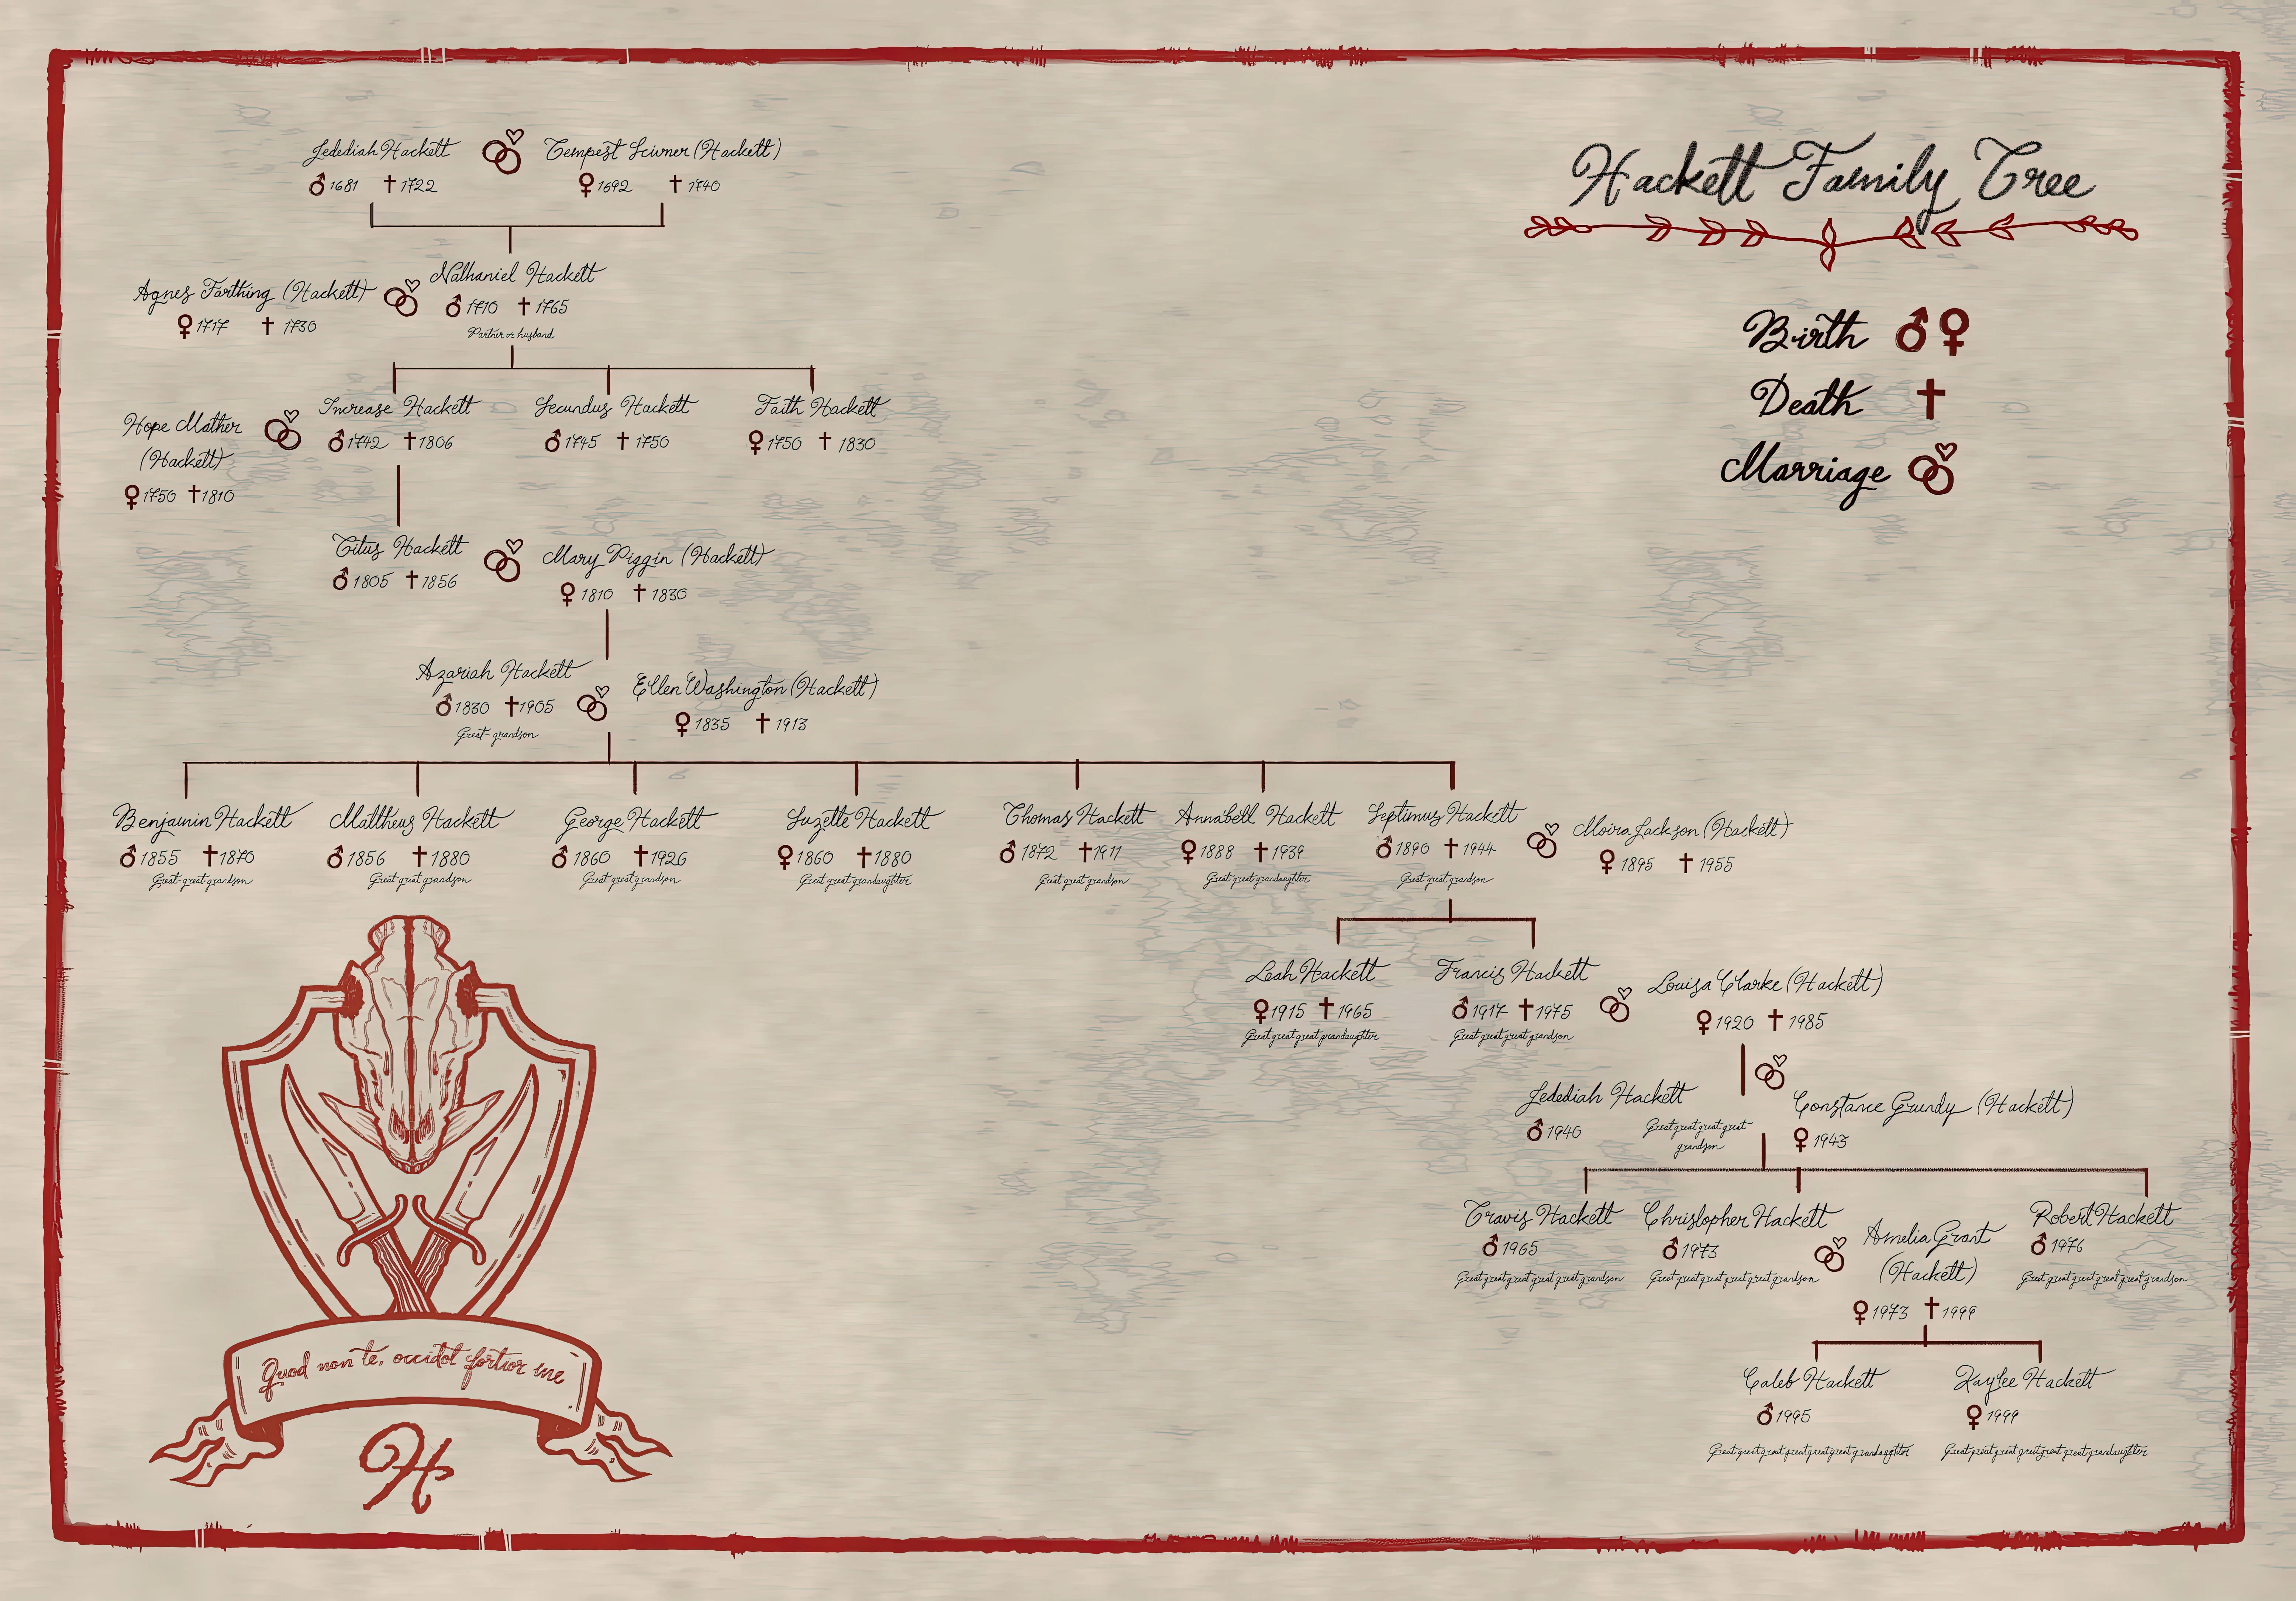 Hackett Family Tree
Birth ♂ ♀
Death †
Marriage
Jedediah Hackett
♂ 1681 † 1722
Tempest Scivner (Hackett)
♀ 1692 † 1740
Agnes Farthing (Hackett)
♀ 1717 † 1730
Nathaniel Hackett
♂ 1710 † 1765
Partner or husband
Hope Mather
(Hackett)
♀ 1750 † 1810
Increase Hackett
♂ 1742 † 1806
Secundus Hackett
♂ 1745 † 1750
Faith Hackett
♀ 1750 † 1830
Titus Hackett
♂ 1805 † 1856
Mary Piggin (Hackett)
♀ 1810 † 1830
Azariah Hackett
♂ 1830 † 1905
Great-grandson
Ellen Washington (Hackett)
♀ 1835 † 1913
Benjamin Hackett
♂ 1855 † 1870
Great-great-grandson
Mattheus Hackett
♂ 1856 † 1880
Great great grandson
George Hackett
♂ 1860 † 1926
Great great grandson
Suzette Hackett
♀ 1860 † 1880
Great great grandaughter
Thomas Hackett
♂ 1872 † 1911
Great great grandson
Annabell Hackett
♀ 1888 † 1939
Great great grandaughter
Septimus Hackett
♂ 1890 † 1944
Great great grandson
Moira Jackson (Hackett)
♀ 1895 † 1955
Leah Hackett
♀ 1915 † 1965
Great great great grandaughter
Francis Hackett
♂ 1917 † 1975
Great great great grandson
Louisa Clarke (Hackett)
♀ 1920 † 1985
Jedediah Hackett
♂ 1940
Great great great great
grandson
Constance Grundy (Hackett)
♀ 1943
Travis Hackett
♂ 1965
Great great great great great grandson
Christopher Hackett
♂ 1973
Great great great great great grandson
Amelia Grant
(Hackett)
♀ 1973 † 1999
Robert Hackett
♂ 1976
Great great great great great grandson
Caleb Hackett
♂ 1995
Great great great great great great grandaughter
Kaylee Hackett
♀ 1999
Great great great great great great grandaughter
Quod non te, occidot fortior me
H